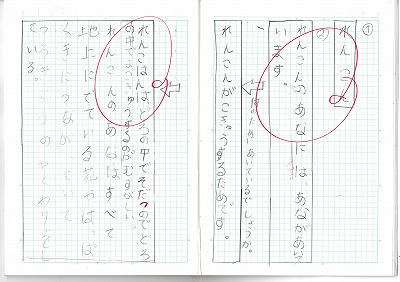 ①
れんこん
②
れんこんのあなには あながあいて
います。
何のためにあいているでしょうか。
れんこんがこきゅうするためです。
れんこんは、どろの中でそだつのでどろ
の中でこきゅうするのがむずかしい。
れんこんのあなはすべて
地上にでている花やは、
くきにつなが
つうき のやくわりをし
ている。